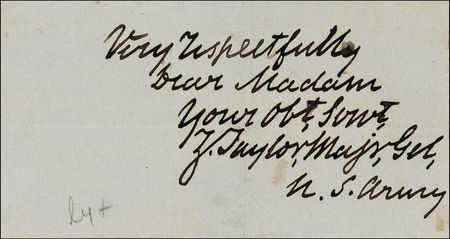 Very respectfully
Dear Madam
Your Obt, Servt,
Z. Taylor, Majr, Gel,
U. S. Army